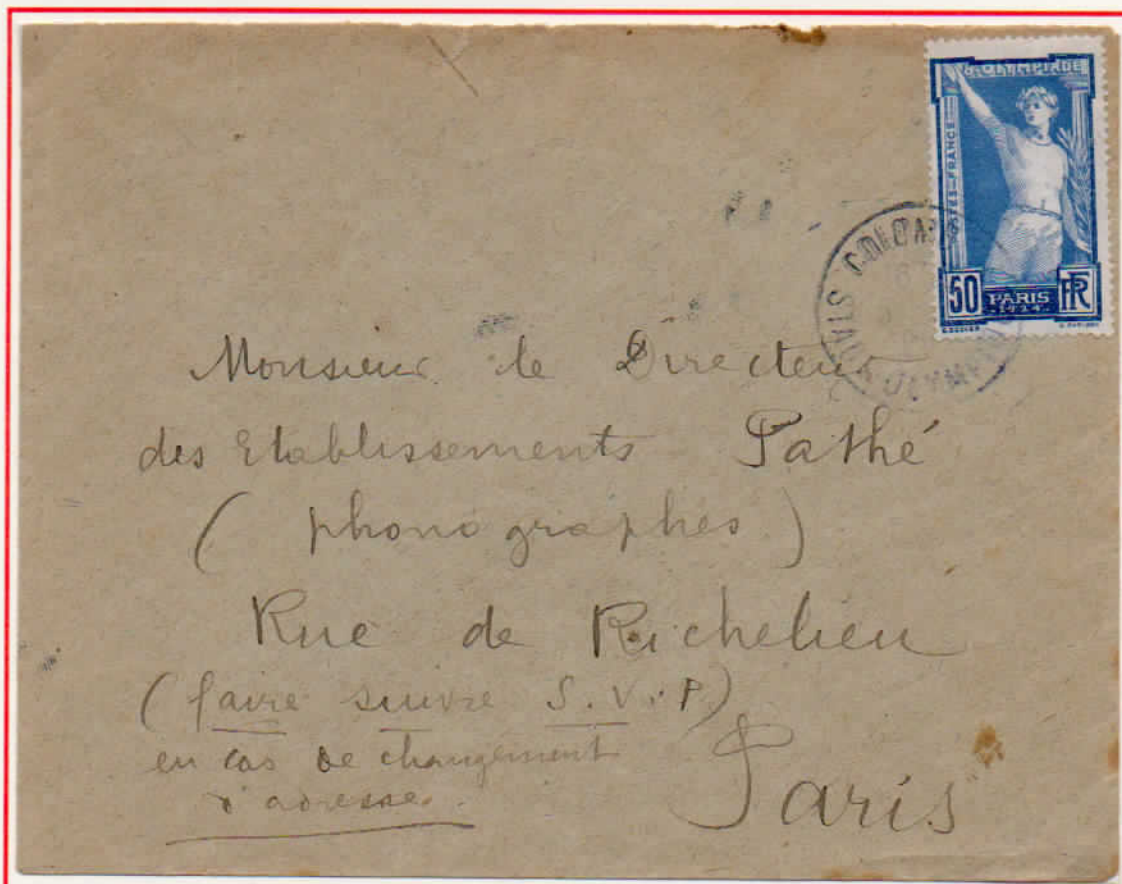 8e OLYMPIADE
POSTES-FRANCE
50 PARIS 1924 RF
COLOMBES
Monsieur le Directeur
des Etablissements Pathé
(phonographes)
Rue de Richelieu
(faire suivre S.V.P)
en cas de changement
d'adresse.
Paris